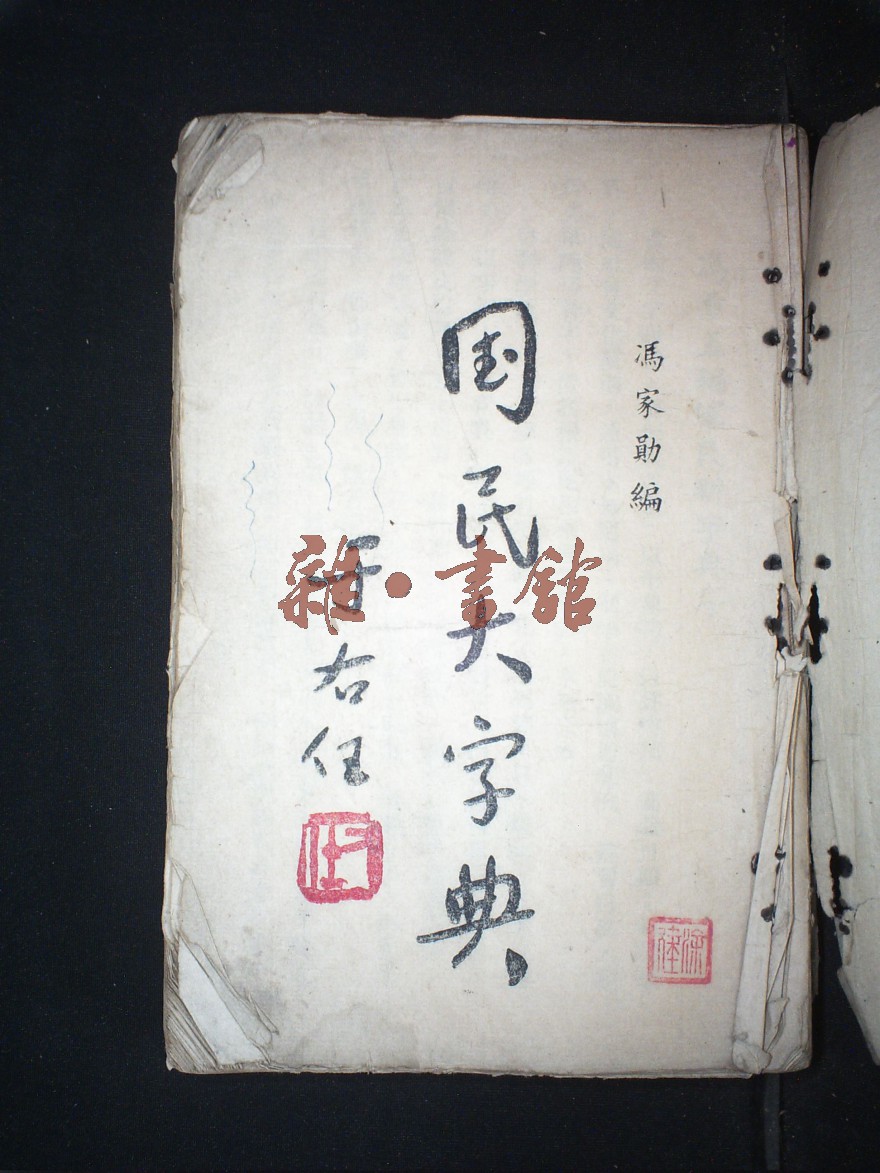 馮家勛編
国民大字典
于右任
雜·書館